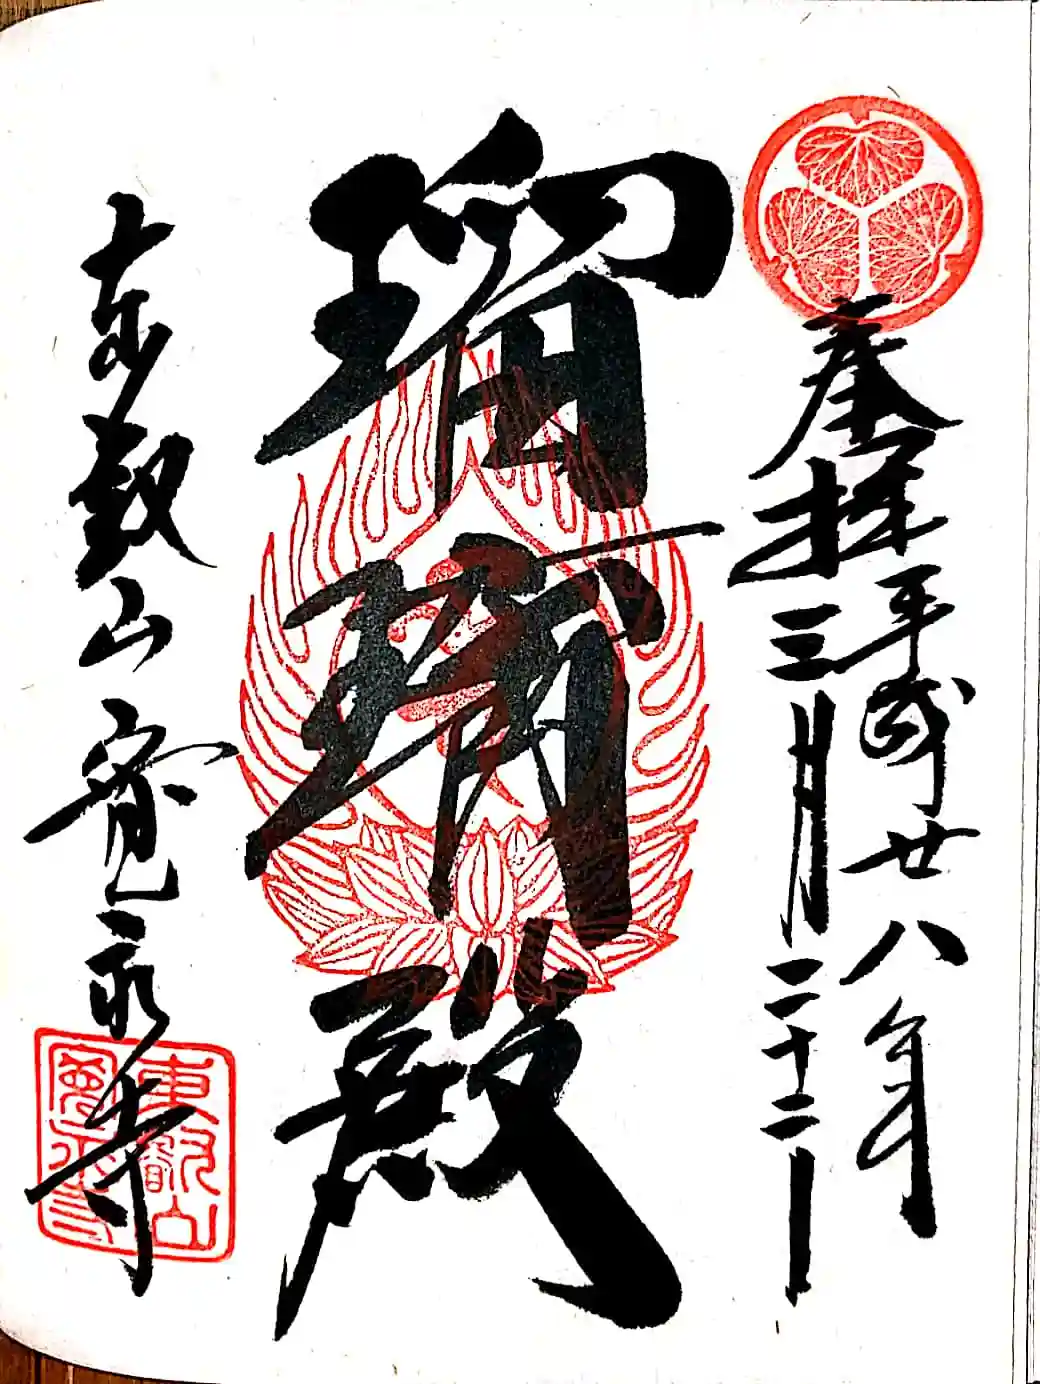 奉拝
平成廿八年
三月二十二日
瑠璃殿
東叡山寛永寺
東叡山
寛永寺